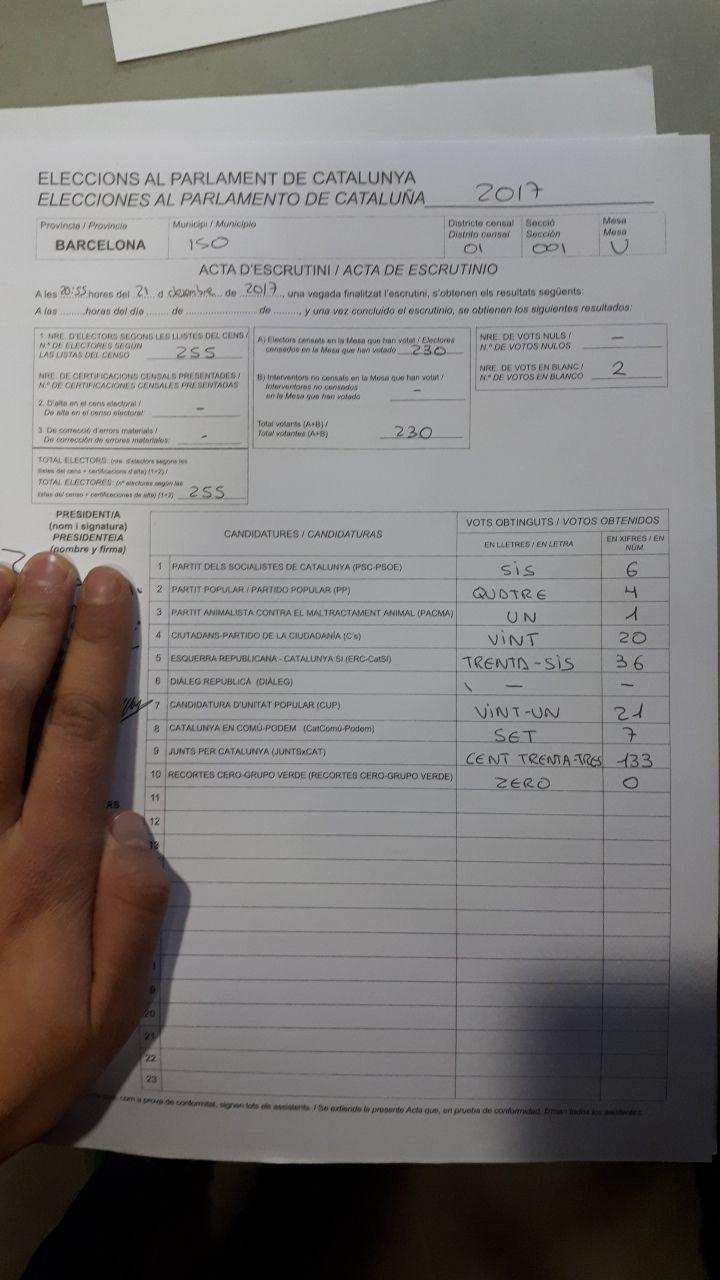 ELECCIONS AL PARLAMENT DE CATALUNYA
ELECCIONES AL PARLAMENTO DE CATALUÑA 2017
Província / Provincia Municipi / Municipio Districte censal Secció Mesa
Distrito censal Sección Mesa
BARCELONA 150 01 001 U
ACTA D'ESCRUTINI / ACTA DE ESCRUTINIO
A les 20:55 hores del 21 d desembre de 2017, una vegada finalitzat l'escrutini, s'obtenen els resultats següents:
A las ........horas del día ....... de ...................... de ........, y una vez concluido el escrutinio, se obtienen los siguientes resultados:
1. NRE. D'ELECTORS SEGONS LES LLISTES DEL CENS /
N.º DE ELECTORES SEGÚN
LAS LISTAS DEL CENSO 255
NRE. DE CERTIFICACIONS CENSALS PRESENTADES /
N.º DE CERTIFICACIONES CENSALES PRESENTADAS
2. D'alta en el cens electoral /
De alta en el censo electoral: -
3. De correcció d'errors materials /
De corrección de errores materiales: -
TOTAL ELECTORS: (nre. d'electors segons les
llistes del cens + certificacions d'alta) (1+2) /
TOTAL ELECTORES: (nº electores según las
listas del censo + certificaciones de alta) (1+2) 255
A) Electors censats en la Mesa que han votat / Electores
censados en la Mesa que han votado 230
B) Interventors no censats en la Mesa que han votat /
Interventores no censados
en la Mesa que han votado -
Total votants (A+B) /
Total votantes (A+B) 230
NRE. DE VOTS NULS /
N.º DE VOTOS NULOS -
NRE. DE VOTS EN BLANC /
N.º DE VOTOS EN BLANCO 2
PRESIDENT/A
(nom i signatura)
PRESIDENTE/A
(nombre y firma)
CANDIDATURES / CANDIDATURAS VOTS OBTINGUTS / VOTOS OBTENIDOS
EN LLETRES / EN LETRA EN XIFRES / EN NÚM.
1 PARTIT DELS SOCIALISTES DE CATALUNYA (PSC-PSOE) SIS 6
2 PARTIT POPULAR / PARTIDO POPULAR (PP) QUATRE 4
3 PARTIT ANIMALISTA CONTRA EL MALTRACTAMENT ANIMAL (PACMA) UN 1
4 CIUTADANS-PARTIDO DE LA CIUDADANÍA (C's) VINT 20
5 ESQUERRA REPUBLICANA - CATALUNYA SÍ (ERC-CatSí) TRENTA-SIS 36
6 DIÀLEG REPUBLICÀ (DIÀLEG) - -
7 CANDIDATURA D'UNITAT POPULAR (CUP) VINT-UN 21
8 CATALUNYA EN COMÚ-PODEM (CatComú-Podem) SET 7
9 JUNTS PER CATALUNYA (JUNTSxCAT) CENT TRENTA-TRES 133
10 RECORTES CERO-GRUPO VERDE (RECORTES CERO-GRUPO VERDE) ZERO 0
RS
11
12
13
20
21
22
23
com a prova de conformitat, signen tots els assistents. / Se extiende la presente Acta que, en prueba de conformidad, firman todos los asistentes.